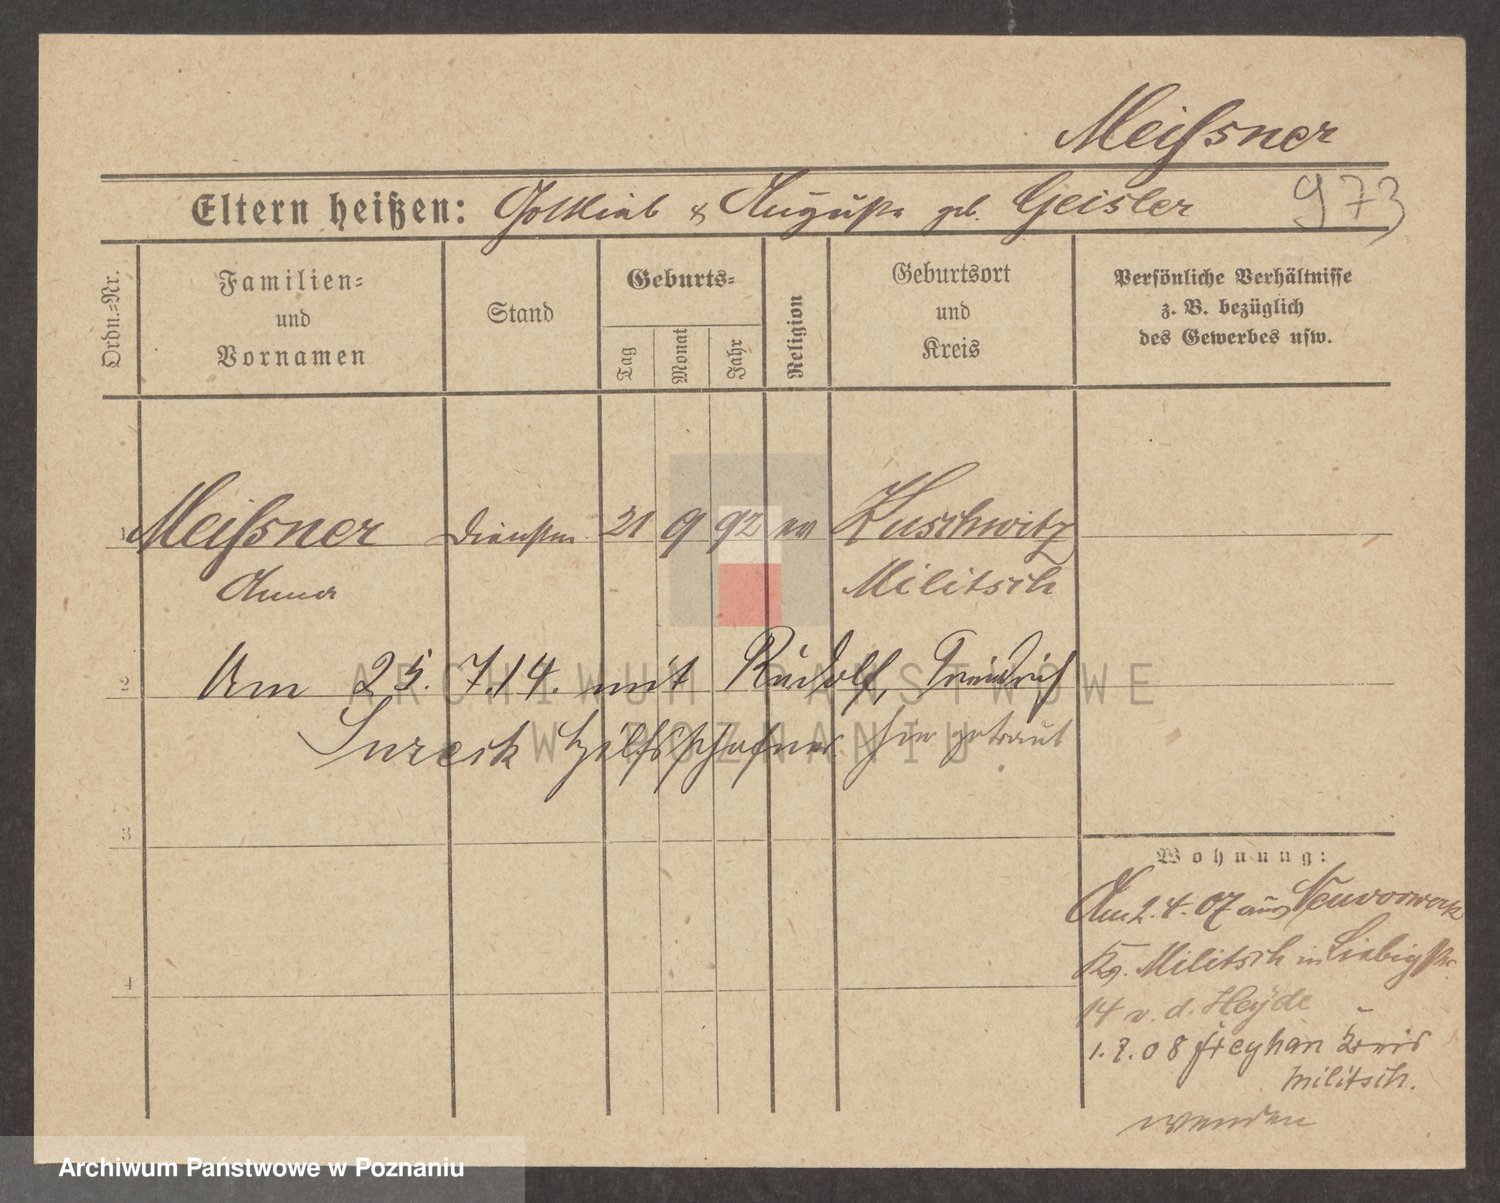 Meißner
Eltern heißen: Gottlieb & Auguste geb. Geisler 973
Ordn.=Nr.
Familien=
und
Vornamen
Stand
Geburts=
Tag
Monat
Jahr
Religion
Geburtsort
und
Kreis
Persönliche Verhältnisse
z. B. bezüglich
des Gewerbes usw.
1 Meißner Dienstm. 21 9 92 ev Kuschwitz
Anna Militsch
2 Am 25. 7. 14. mit Rudolf, Friedrich
Hilfsschafner hier getraut
3
4
Wohnung:
Am 2. 4. 07 aus Neuvorwerk
Kr. Militsch in Liebigstr.
14 v. d. Heyde
1. 7. 08 Freyhan Kreis
Militsch.
wenden
ARCHIWUM PAŃSTWOWE
W POZNANIU
Archiwum Państwowe w Poznaniu